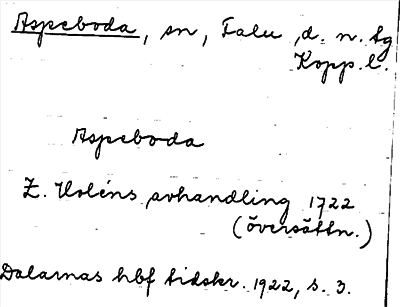 Aspeboda, sn, Falu, d. n. tg
Kopp. l.
Aspeboda
Z. Holéns avhandling 1722
(översättn.)
Dalarnas hbf tidskr. 1922, s. 3.